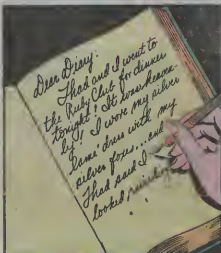 Dear Diary:
Thad and I went to
the Ruby Club for dinner
tonight! It was heaven-
ly! I wore my silver
lamé dress with my
silver foxes... and
Thad said I
looked